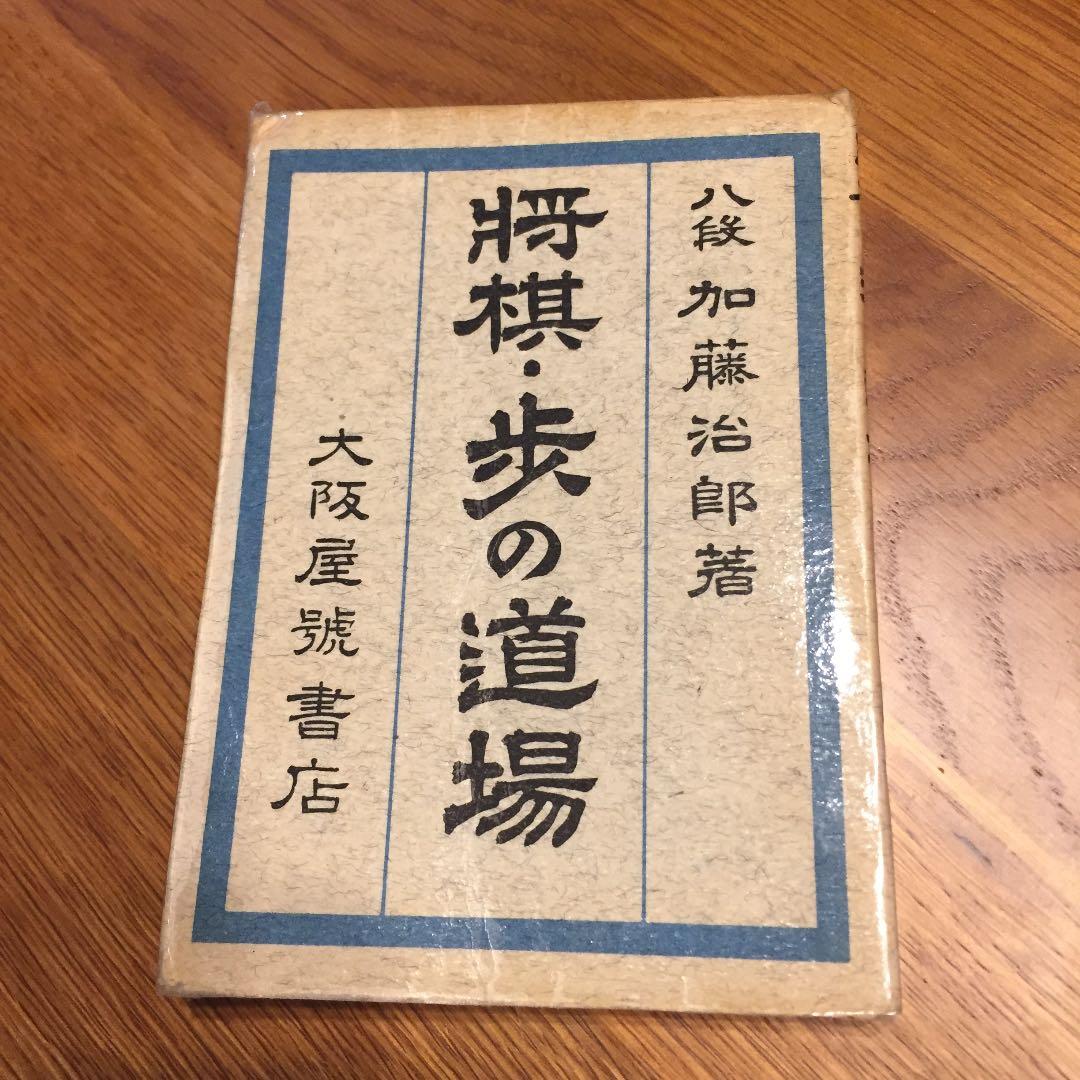 八段 加藤治郎著
將棋・歩の道場
大阪屋號書店